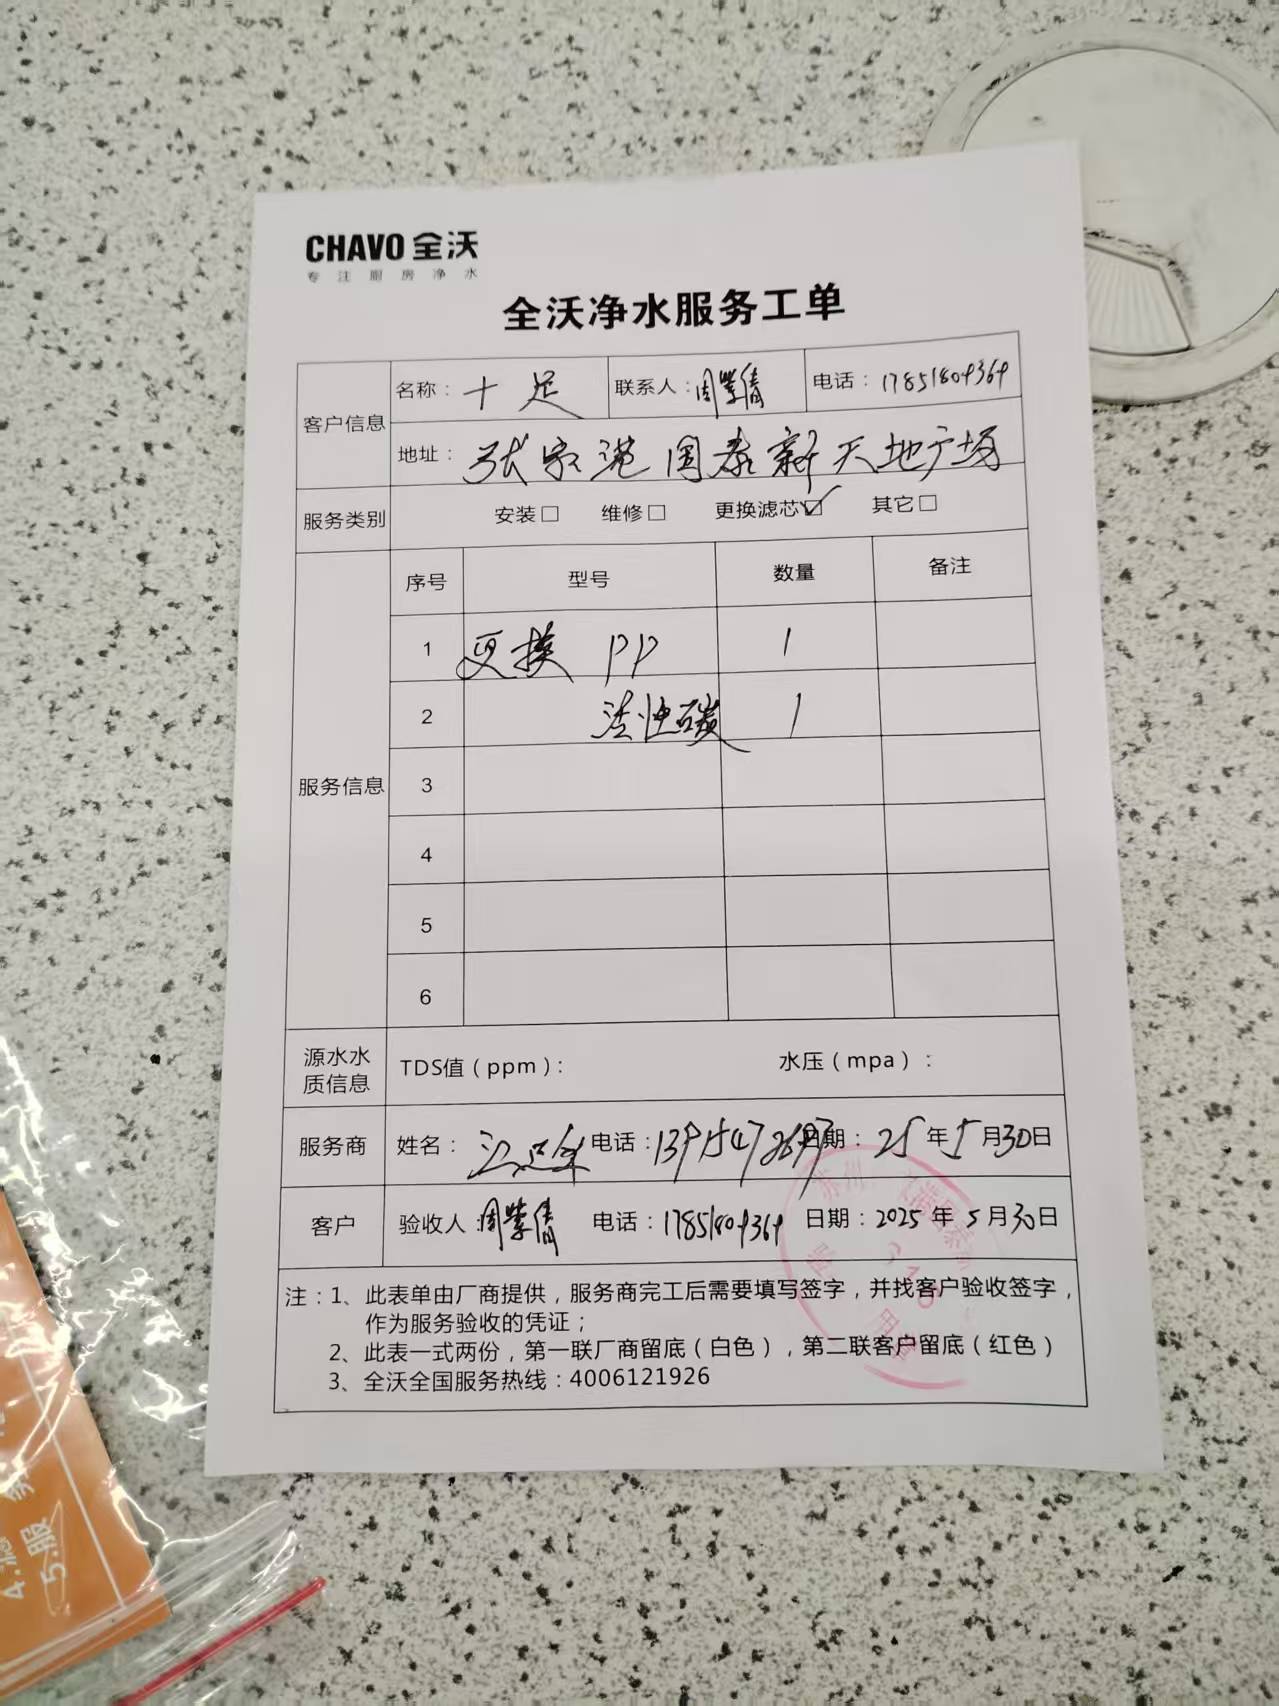 CHAVO 全沃
专注厨房净水
全沃净水服务工单
客户信息 名称：十足 联系人：周紫倩 电话：17851804364
地址：张家港国泰新天地广场
服务类别 安装□ 维修□ 更换滤芯☑ 其它□
服务信息 序号 型号 数量 备注
1 更换 PP 1
2 活性碳 1
3
4
5
6
源水水质信息 TDS值（ppm）： 水压（mpa）：
服务商 姓名： 电话： 日期：25年5月30日
客户 验收人：周紫倩 电话：17851804364 日期：2025年5月30日
注：1、此表单由厂商提供，服务商完工后需要填写签字，并找客户验收签字，
作为服务验收的凭证；
2、此表一式两份，第一联厂商留底（白色），第二联客户留底（红色）
3、全沃全国服务热线：4006121926
5.服